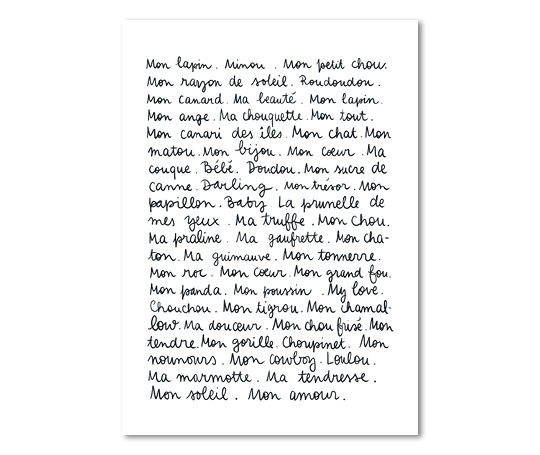 Mon lapin. Minou. Mon petit chou.
Mon rayon de soleil. Roudoudou.
Mon canard. Ma beauté. Mon lapin.
Mon ange. Ma chouquette. Mon tout.
Mon canari des îles. Mon chat. Mon
matou. Mon bijou. Mon cœur. Ma
couque. Bébé. Doudou. Mon sucre de
canne. Darling. Mon trésor. Mon
papillon. Baby. La prunelle de
mes yeux. Ma truffe. Mon chou.
Ma praline. Ma gaufrette. Mon cha-
ton. Ma guimauve. Mon tonnerre.
Mon roc. Mon cœur. Mon grand fou.
Mon panda. Mon poussin. My love.
Chouchou. Mon tigrou. Mon chamal-
low. Ma douceur. Mon chou frisé. Mon
tendre. Mon gorille. Choupinet. Mon
nounours. Mon cowboy. Loulou.
Ma marmotte. Ma tendresse.
Mon soleil. Mon amour.